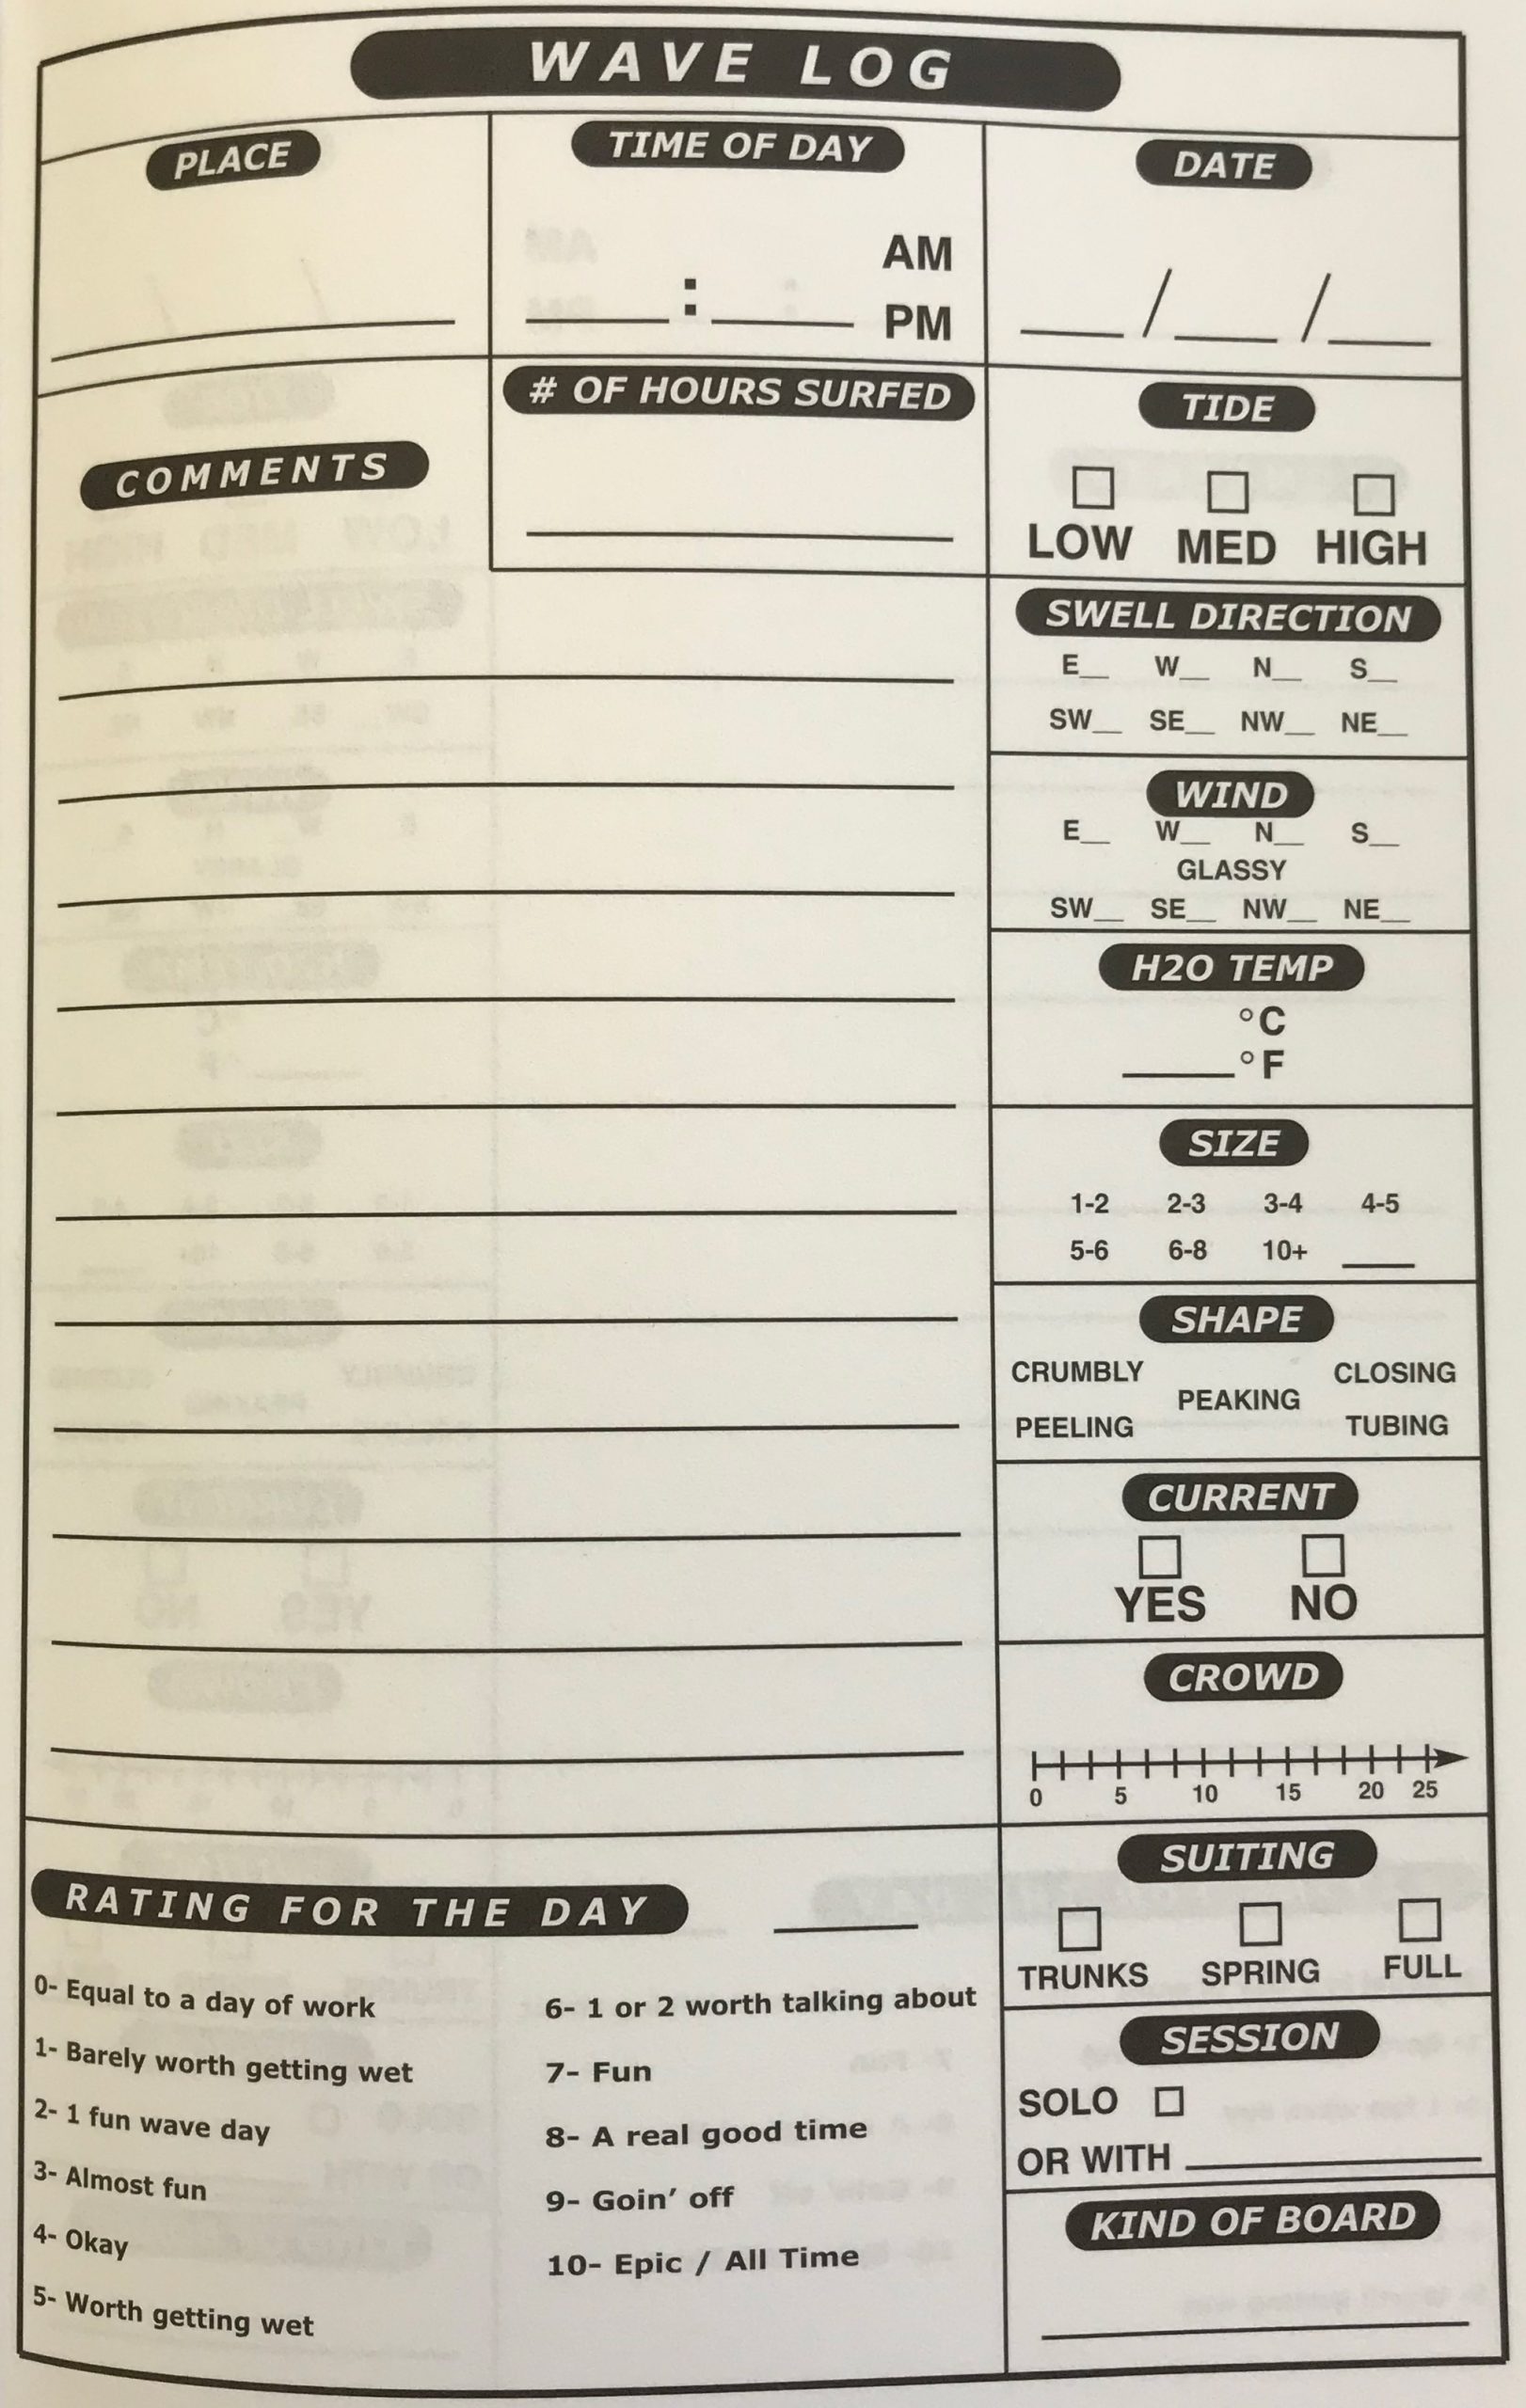 WAVE LOG
PLACE
TIME OF DAY
AM
: PM
DATE
/ /
COMMENTS
# OF HOURS SURFED
TIDE
LOW MED HIGH
SWELL DIRECTION
E__ W__ N__ S__
SW__ SE__ NW__ NE__
WIND
E__ W__ N__ S__
GLASSY
SW__ SE__ NW__ NE__
H2O TEMP
°C
____°F
SIZE
1-2 2-3 3-4 4-5
5-6 6-8 10+ ____
SHAPE
CRUMBLY CLOSING
PEAKING
PEELING TUBING
CURRENT
YES NO
CROWD
0 5 10 15 20 25
RATING FOR THE DAY ____
0- Equal to a day of work
1- Barely worth getting wet
2- 1 fun wave day
3- Almost fun
4- Okay
5- Worth getting wet
6- 1 or 2 worth talking about
7- Fun
8- A real good time
9- Goin' off
10- Epic / All Time
SUITING
TRUNKS SPRING FULL
SESSION
SOLO
OR WITH ____
KIND OF BOARD